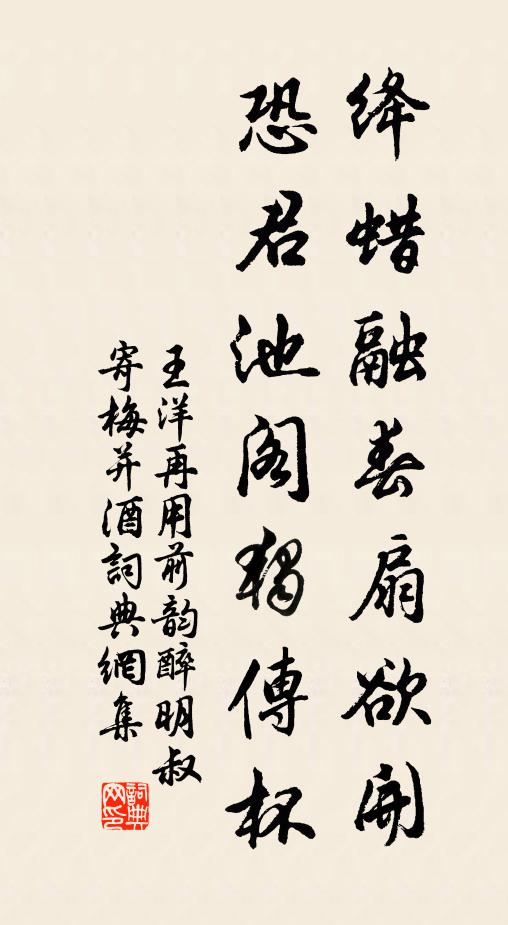 绛蜡融春扇欲開
恐君池阁獨傳杯
王洋再用前韵醉明叔
寄梅并酒詞典網集
詞典
网印